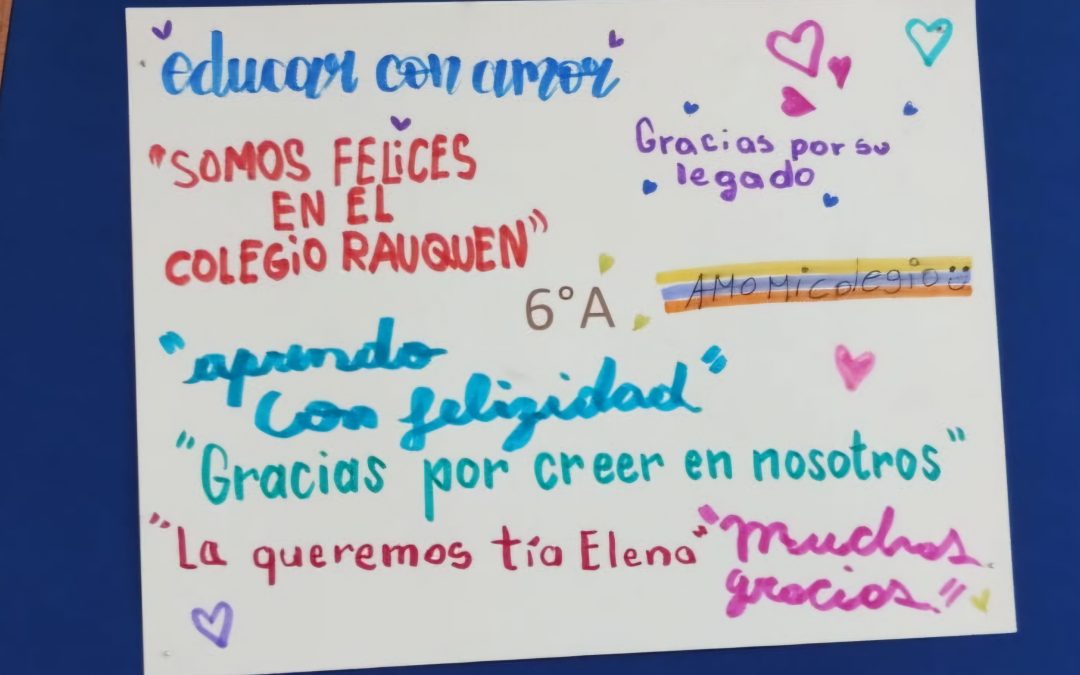 "educar con amor"
"SOMOS FELiCES
EN EL
COLEGiO RAUQUEN"
Gracias por su
legado
6°A
AMO Mi colegio ü
"aprendo
con felizidad"
"Gracias por creer en nosotros"
"La queremos tía Elena"
"Muchas
gracias"